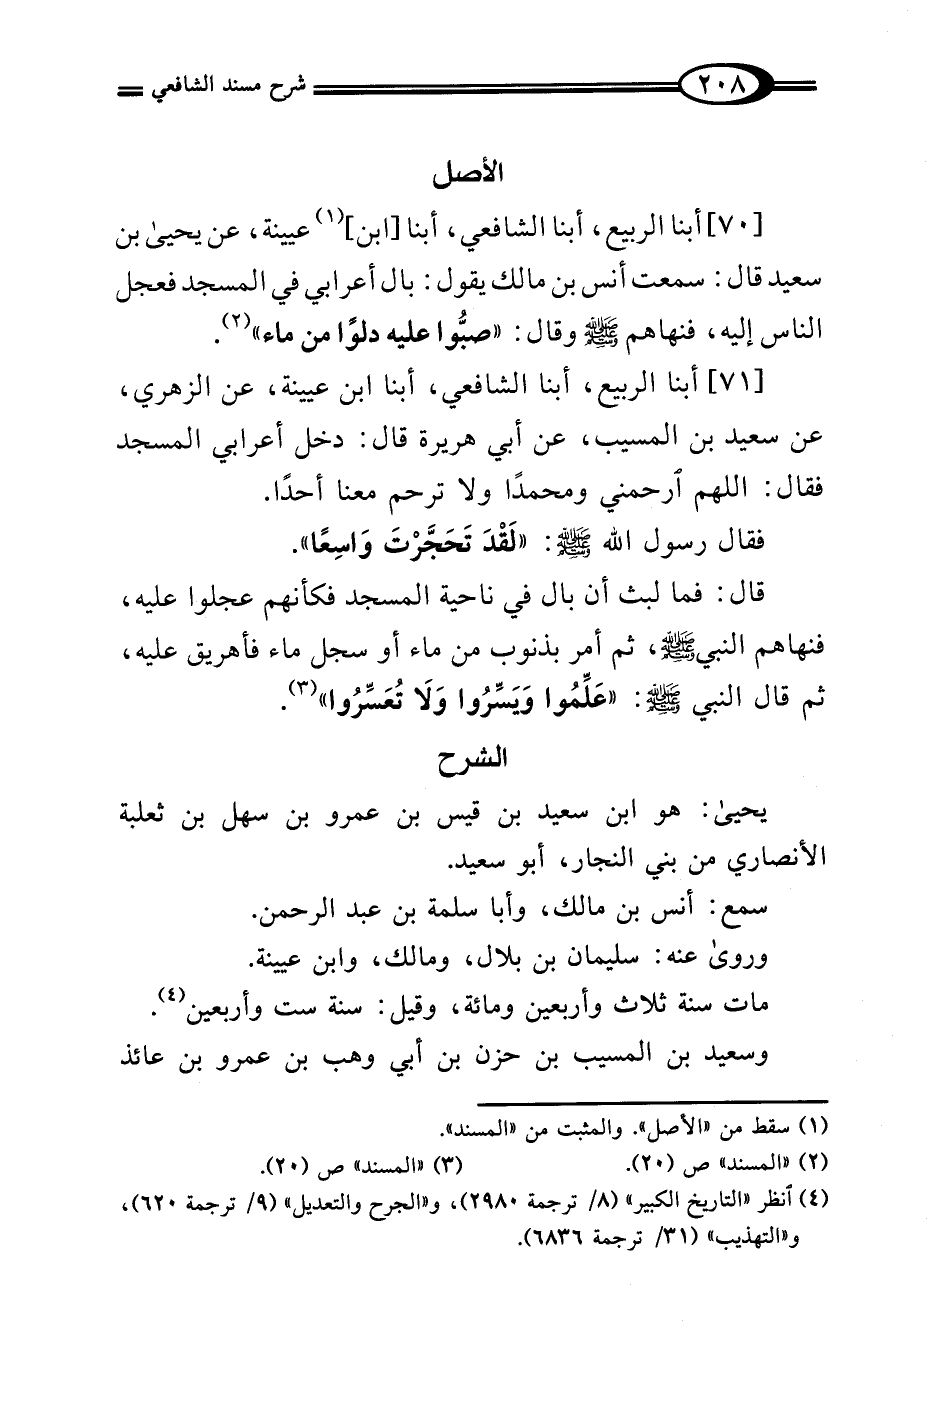 ٢٠٨ شرح مسند الشافعي
الأصل
[٧٠] أبنا الربيع، أبنا الشافعي، أبنا [ابن](١) عيينة، عن يحيىٰ بن
سعيد قال: سمعت أنس بن مالك يقول: بال أعرابي في المسجد فعجل
الناس إليه، فنهاهم ﷺ وقال: «صبُّوا عليه دلوًا من ماء»(٢).
[٧١] أبنا الربيع، أبنا الشافعي، أبنا ابن عيينة، عن الزهري،
عن سعيد بن المسيب، عن أبي هريرة قال: دخل أعرابي المسجد
فقال: اللهم ٱرحمني ومحمدًا ولا ترحم معنا أحدًا.
فقال رسول الله ﷺ: «لَقَدْ تَحَجَّرْتَ وَاسِعًا».
قال: فما لبث أن بال في ناحية المسجد فكأنهم عجلوا عليه،
فنهاهم النبي ﷺ، ثم أمر بذنوب من ماء أو سجل ماء فأهريق عليه،
ثم قال النبي ﷺ: «عَلِّمُوا وَيَسِّرُوا وَلَا تُعَسِّرُوا»(٣).
الشرح
يحيىٰ: هو ابن سعيد بن قيس بن عمرو بن سهل بن ثعلبة
الأنصاري من بني النجار، أبو سعيد.
سمع: أنس بن مالك، وأبا سلمة بن عبد الرحمن.
وروىٰ عنه: سليمان بن بلال، ومالك، وابن عيينة.
مات سنة ثلاث وأربعين ومائة، وقيل: سنة ست وأربعين(٤).
وسعيد بن المسيب بن حزن بن أبي وهب بن عمرو بن عائذ
(١) سقط من «الأصل». والمثبت من «المسند».
(٢) «المسند» ص (٢٠). (٣) «المسند» ص (٢٠).
(٤) ٱنظر «التاريخ الكبير» (٨/ ترجمة ٢٩٨٠)، و«الجرح والتعديل» (٩/ ترجمة ٦٢٠)،
و«التهذيب» (٣١/ ترجمة ٦٨٣٦).